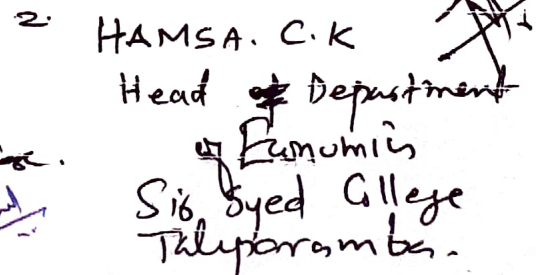 2. HAMSA. C.K
Head of Department
of Economics
Sir Syed College
Taliparamba.